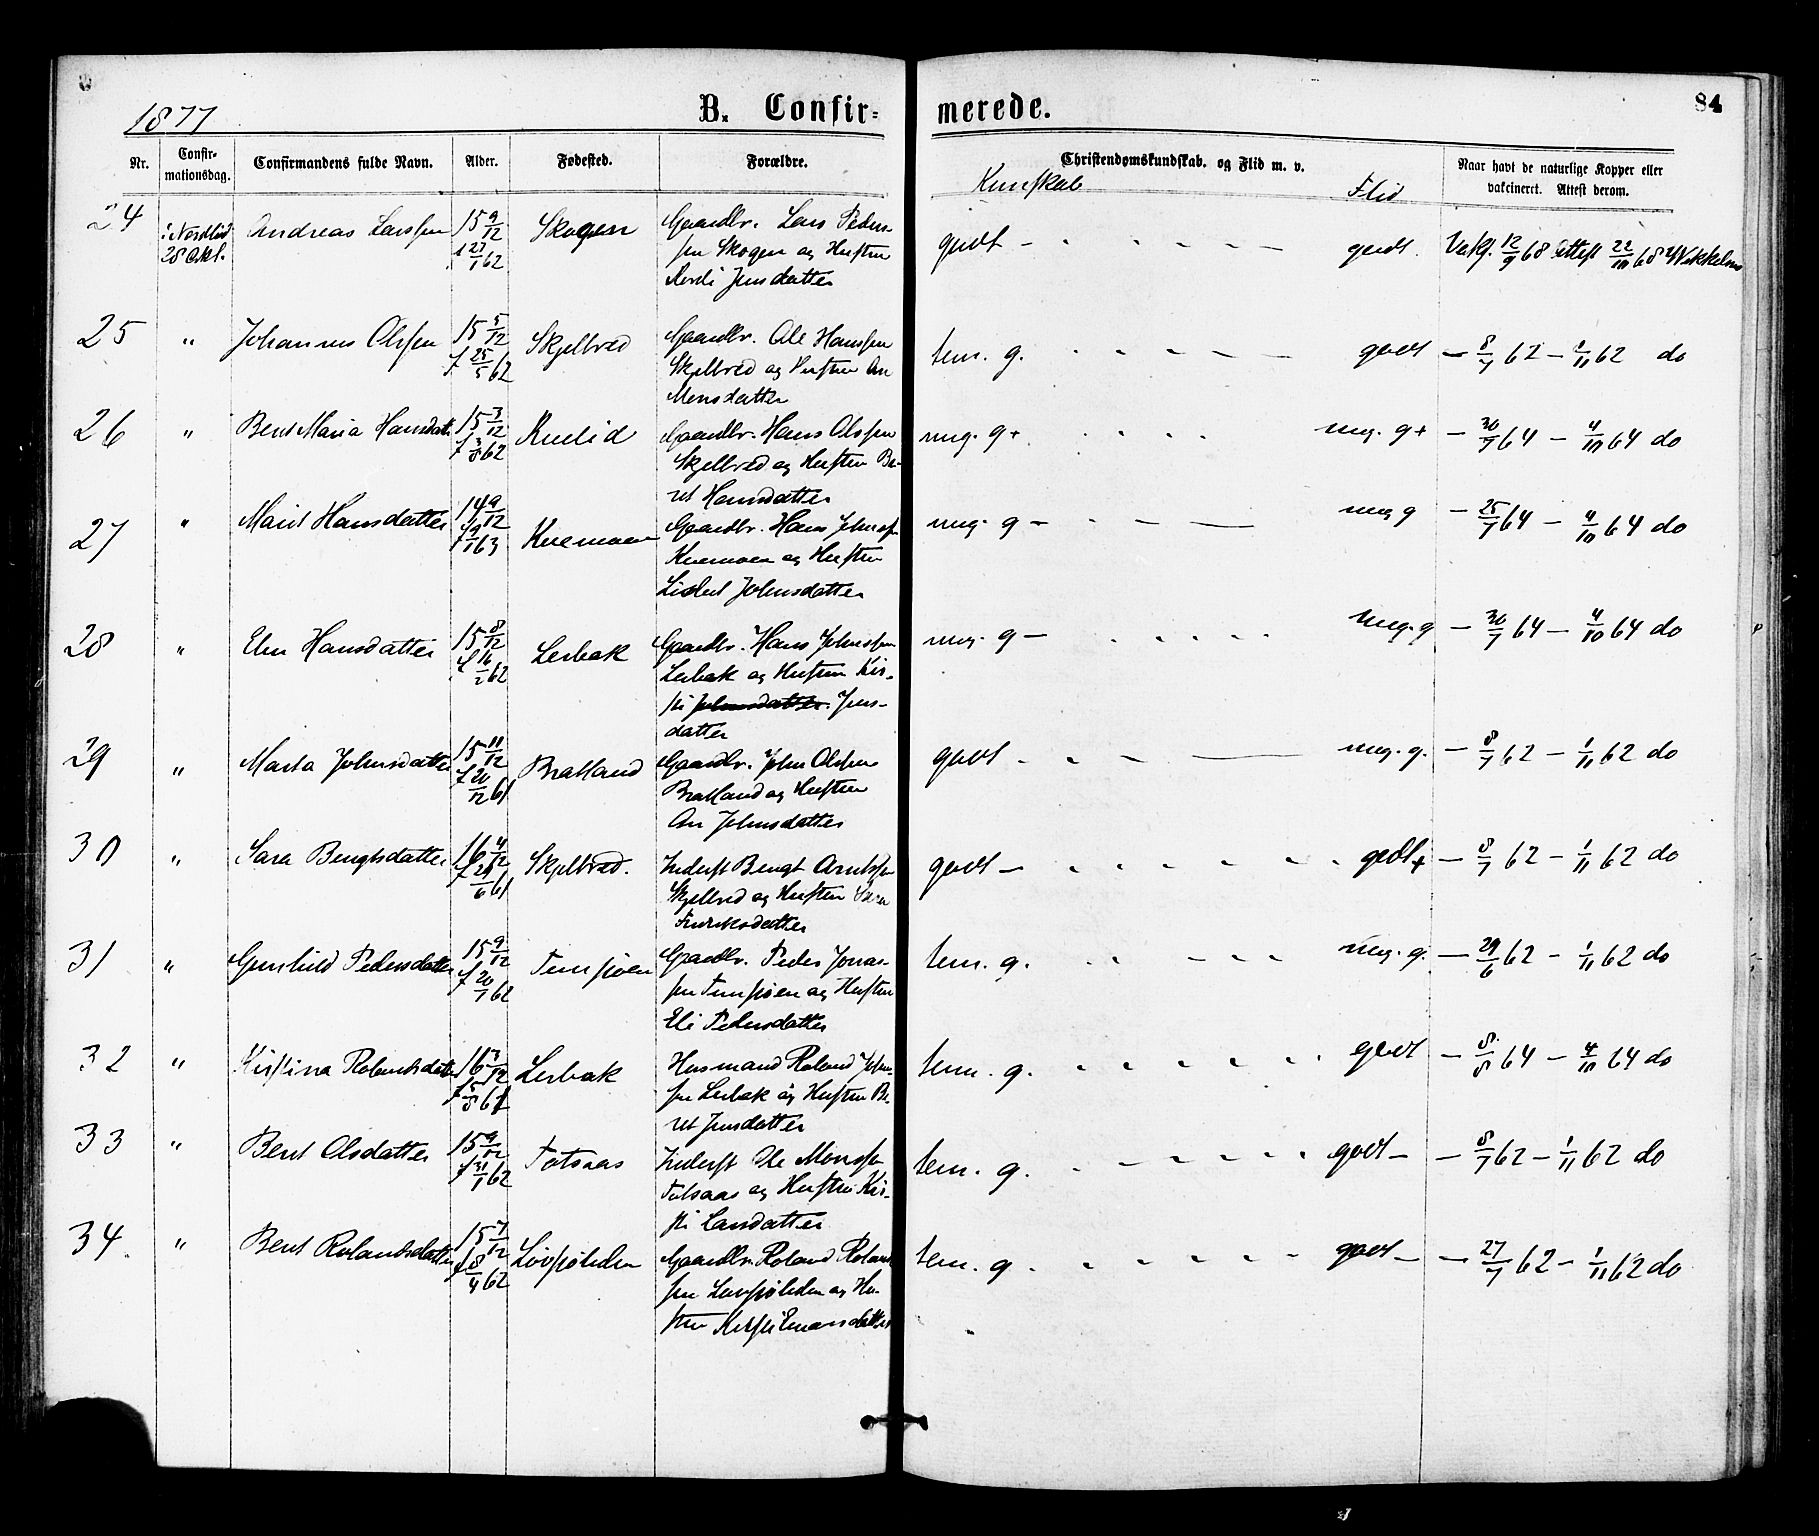 1877
B. Confir- merede.
84
Nr.
Confir-
mationsdag.
Confirmandens fulde Navn.
Alder.
Fødested.
Forældre.
Christendomskundskab, og Flid m. v.
Kunskab
Flid
Naar havt de naturlige Kopper eller
vakcineret. Attest derom.
24
i Nordlid
28 Okt.
Andreas Larssen
15 9/12
f 27/1 62
Skogen
Gaardbr. Lars Peders-
sen Skogen og Hustru
Jensdatter
godt -
godt.
Vakf. 12/9 68 Attest 22/10 68
25
"
Johannes Olssen
15 5/12
f 25/5 62
Skjelbred
Gaardbr. Ole Hanssen
Skjelbred og Hustru An
Monsdatter
tem. g.
godt
- 8/7 62 - 1/11 62 do
26
"
Beret Maria Hansdatt
15 3/12
f 3/8 62
Kvelid
Gaardbr. Hans Olssen
Skjelbred og Hustru Be-
ret Hansdatter
mg. g+
mg. g+
- 30/7 64 - 4/10 64 do
27
"
Marit Hansdatter
14 9/12
f 9/1 63
Kvemoen
Gaardbr. Hans Johnssen
Kvemoen og Hustru
Lisbet Johnsdatter
mg. g -
mg g
- 25/7 64 - 4/10 64 do
28
"
Elen Hansdatter
15 8/12
f 16/2 62
Lerbak
Gaardbr. Hans Johnssen
Lerbak og Hustru Kir-
sti Johnsdatter. Jens-
datter
mg. g -
mg. g
- 30/7 64 - 4/10 64 do
29
"
Marta Johnsdatter
15 11/12
f 20/12 61
Bratland
Gaardbr. John Olssen
Bratland og Hustru
An Johnsdatter
godt -
mg. g.
- 8/7 62 - 1/11 62 do
30
"
Sara Bengtsdatter
16 4/12
f 29/6 61
Skjelbred.
Inderst Bengt Arntssen
Skjelbred og Hustru Sara
godt -
godt+
- 8/7 62 - 1/11 62 do
31
"
Gunhild Pedersdatter
15 9/12
f 20/1 62
Tunsjøen
Gaardbr. Peder Jonas-
sen Tunsjøen og Hustru
Eli Pedersdatter
tem. g.
mg. g.
- 29/6 62 - 1/11 62 do
32
"
Kristina Rolandsdatt
16 3/12
Lerbak
Husmand Roland John-
sen Lerbak og Hustru Be-
ret Jensdatter
tem. g.
godt
- 8/8 64 - 4/10 64 do
33
"
Beret Olsdatter
15 9/12
f 31/1 62
Totsaas
Inderst Ole Monssen
Totsaas og Hustru Kir-
sti Larsdatter
tem. g.
godt -
- 8/7 62 - 1/11 62 do
34.
"
Beret Rolandsdatter
15 7/12
f 8/4 62
Løvsjøliden
Gaardbr. Roland Roland-
sen Løvsjøliden og Hu-
stru
tem. g.
godt -
- 27/7 62 - 1/11 62 do